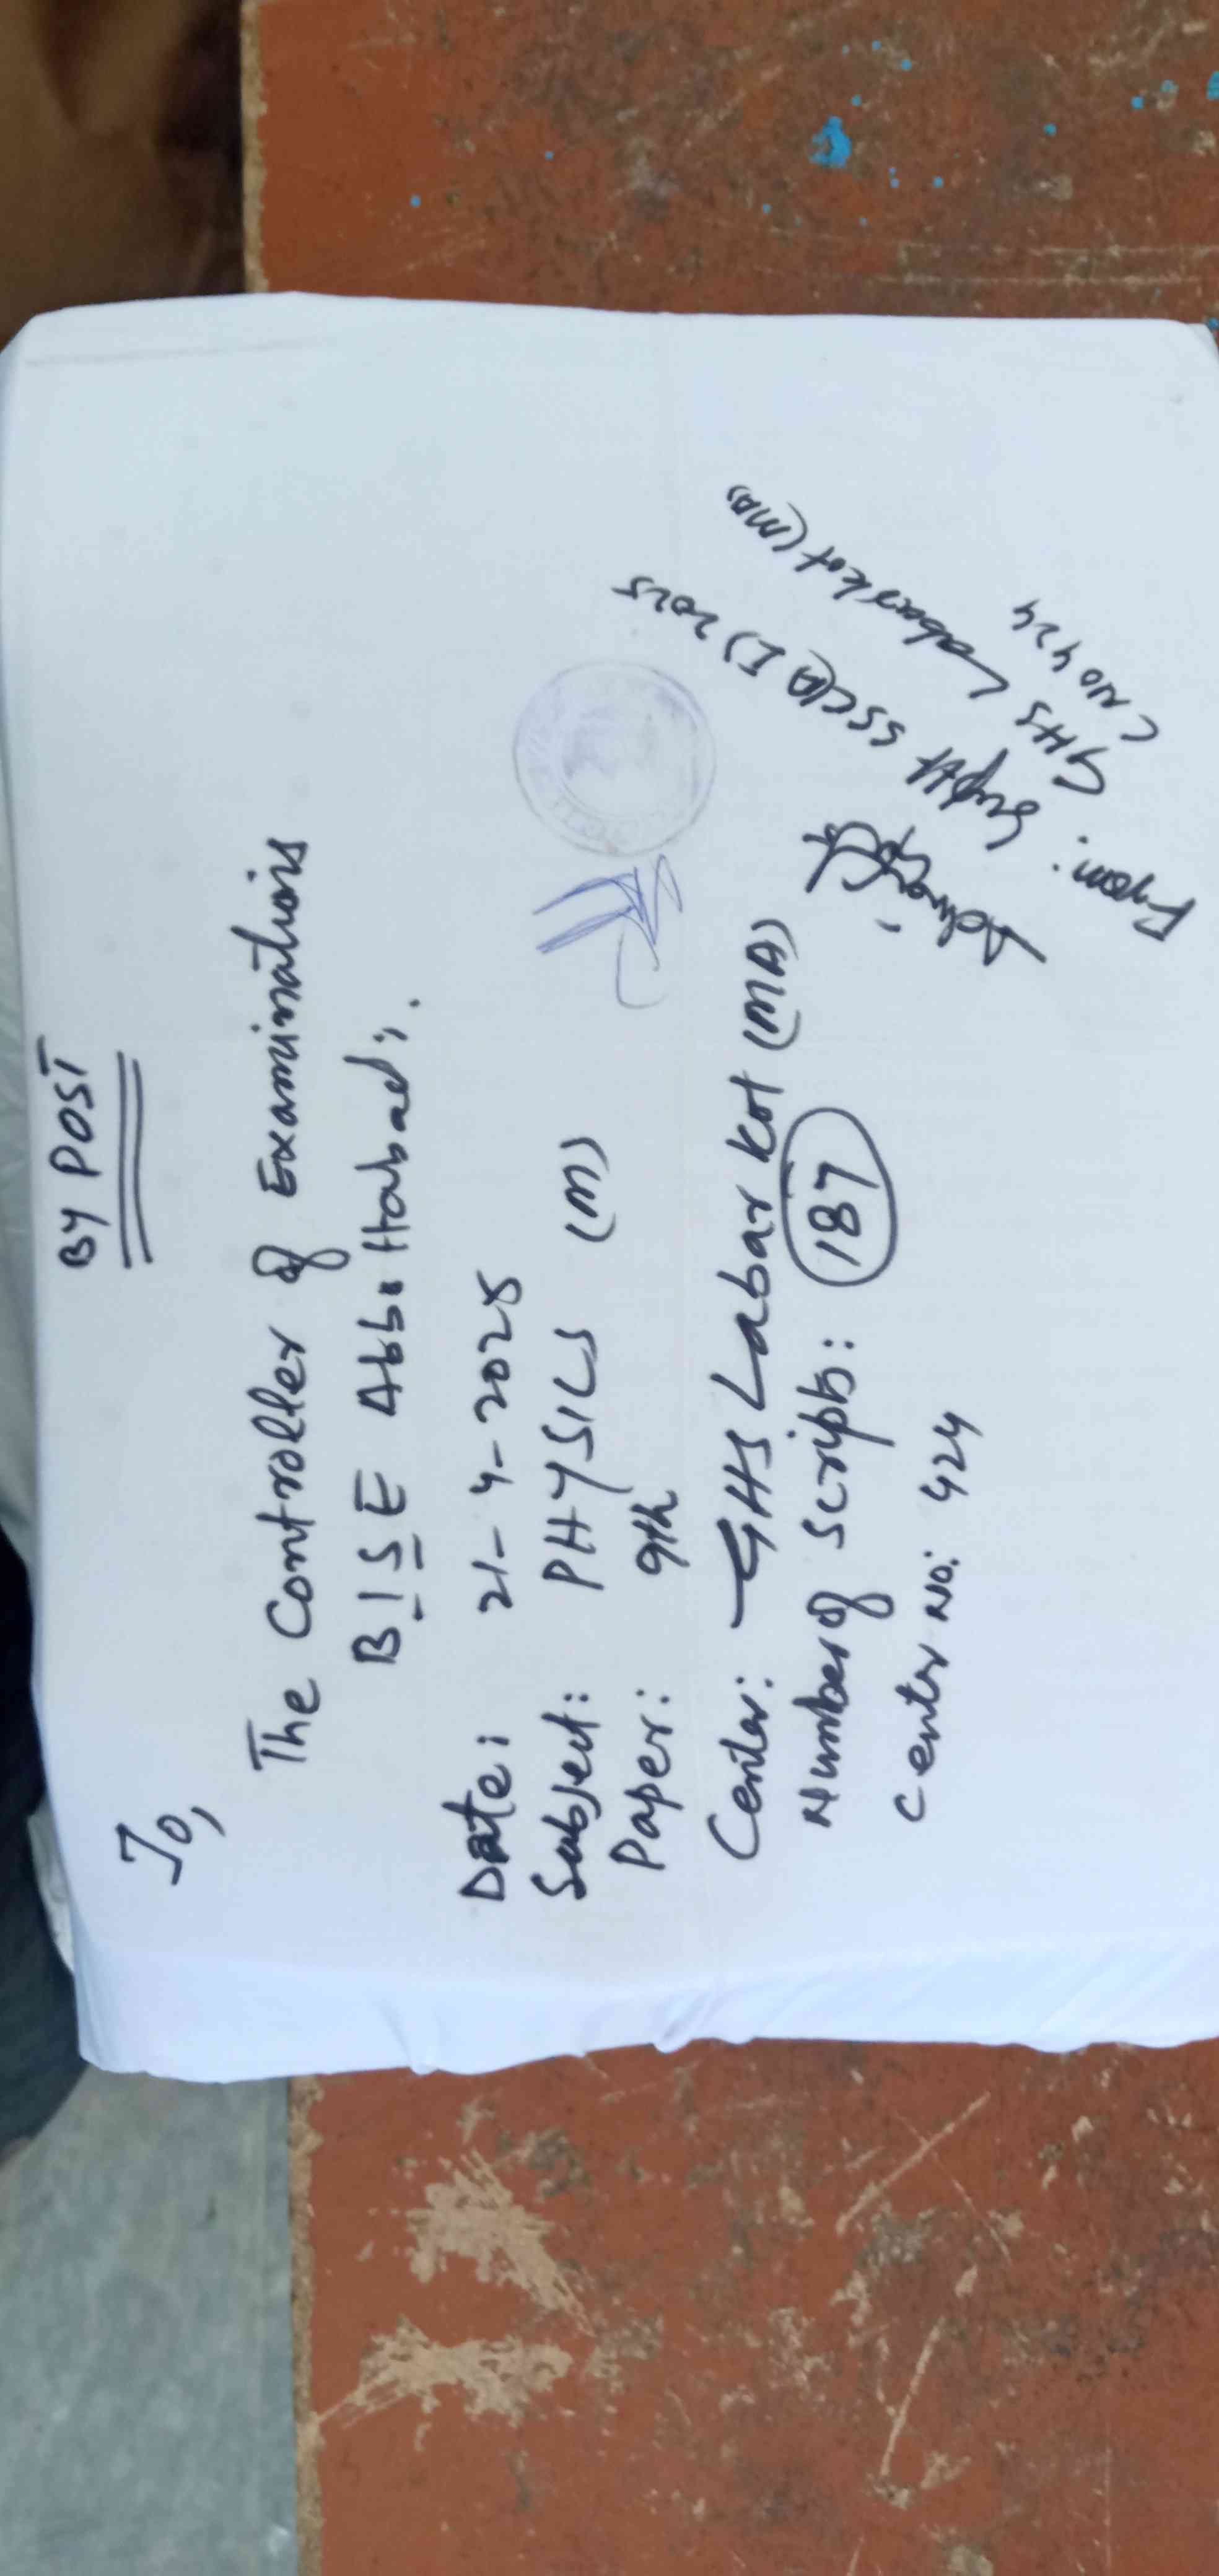 BY POST
To,
The Controller of Examinations
B I S E Abbottabad.
Date: 21-4-2025
Subject: PHYSICS (M)
Paper: 9th
Center: GHS Labar Kot (MA)
Number of Scripts: 187
Center No: 424
From: Supdt SSC(A I) 2025
GHS Labarkot (MA)
C NO 424